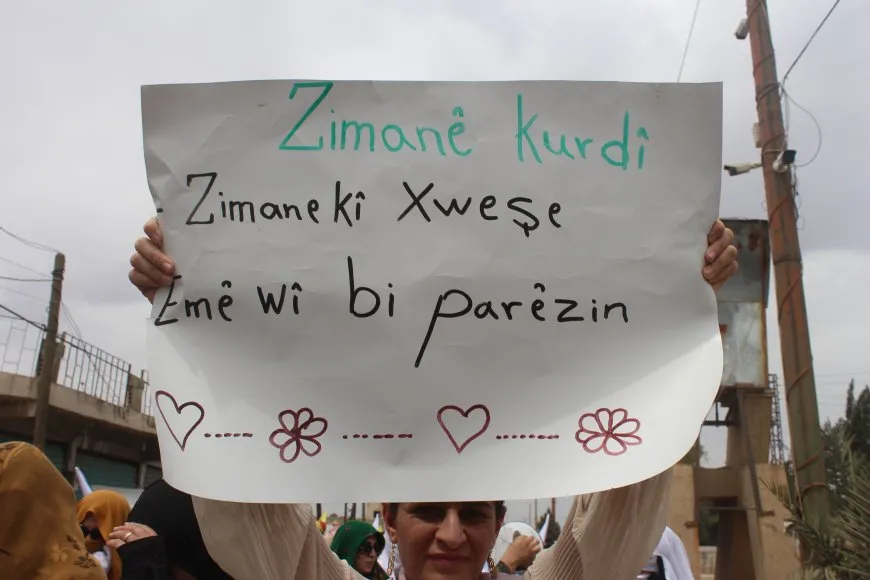 Zimanê kurdî
Zimanekî xweşe
Emê wî bi parêzin